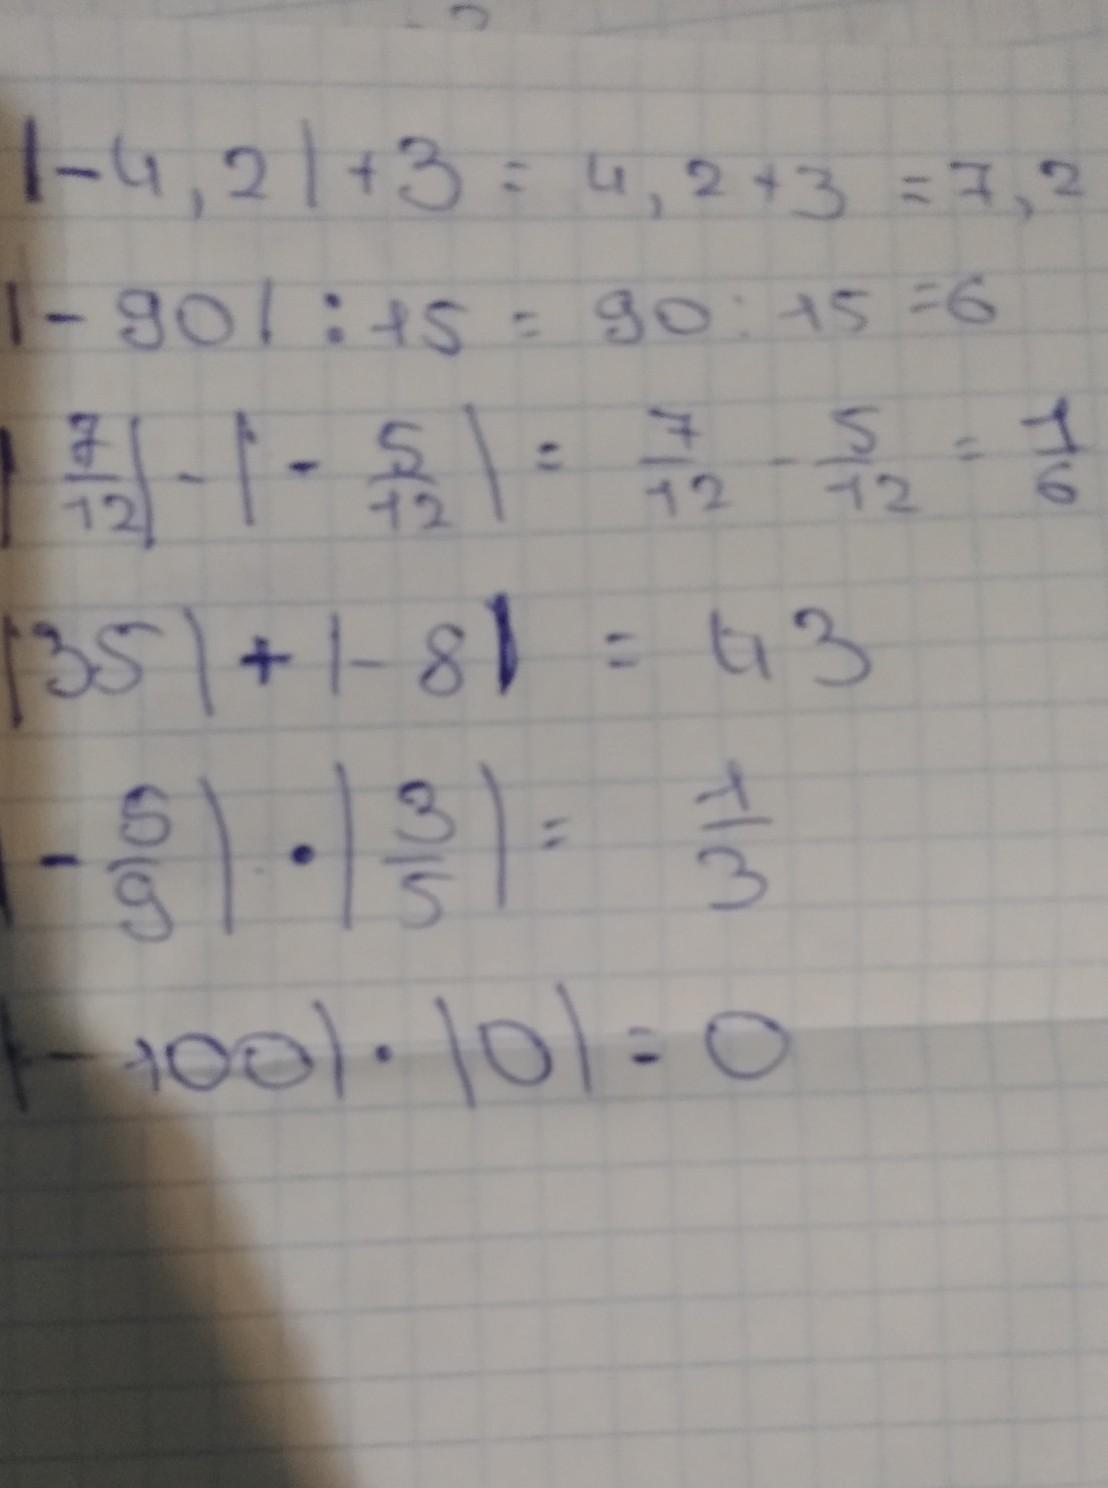 |-4,2|+3 = 4,2+3 =7,2
|-90| : 15 = 90 : 15 =6
|7/12| - |-5/12| = 7/12 - 5/12 = 1/6
|35| + |-8| = 43
|-5/9| · |3/5| = 1/3
|-100| · |0| = 0